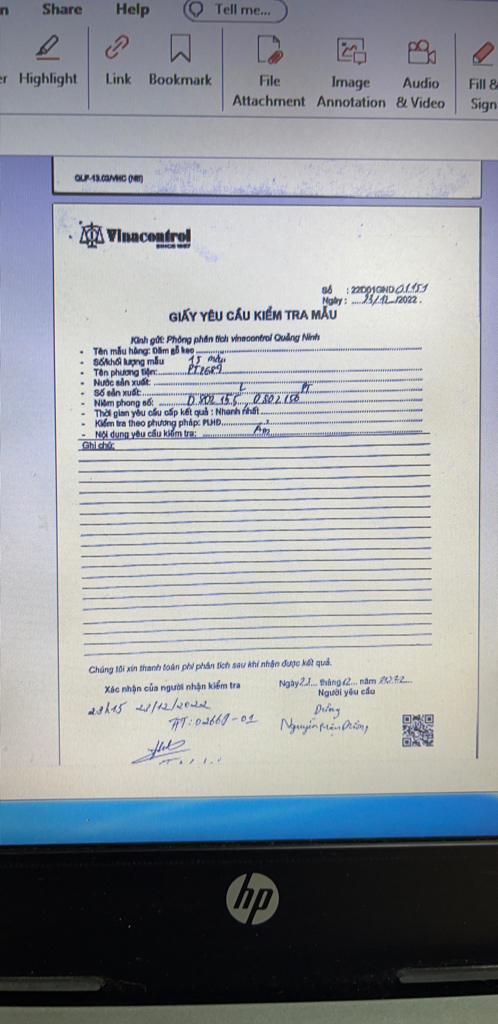 Share Help Tell me...
Highlight Link Bookmark File Attachment Image Annotation Audio & Video Fill & Sign
QLF-13.03/VHC (NB)
Vinacontrol
SINCE 1957
Số : 22D01GND01151
Ngày : 23/12/2022.
GIẤY YÊU CẦU KIỂM TRA MẪU
Kính gửi: Phòng phân tích vinacontrol Quảng Ninh
- Tên mẫu hàng: Dăm gỗ keo
- Số/khối lượng mẫu 15 mẫu
- Tên phương tiện: PT2689
- Nước sản xuất:
- Số sản xuất:
L PT
- Niêm phong số: 0.802.155, 0802156
- Thời gian yêu cầu cấp kết quả : Nhanh nhất
- Kiểm tra theo phương pháp: PLHD
- Nội dung yêu cầu kiểm tra: Ẩm
Ghi chú:
Chúng tôi xin thanh toán phí phân tích sau khi nhận được kết quả.
Xác nhận của người nhận kiểm tra
Ngày 23 tháng 12 năm 2022
Người yêu cầu
23h15 23/12/2022
AT: 02669-01
Nguyễn
hp